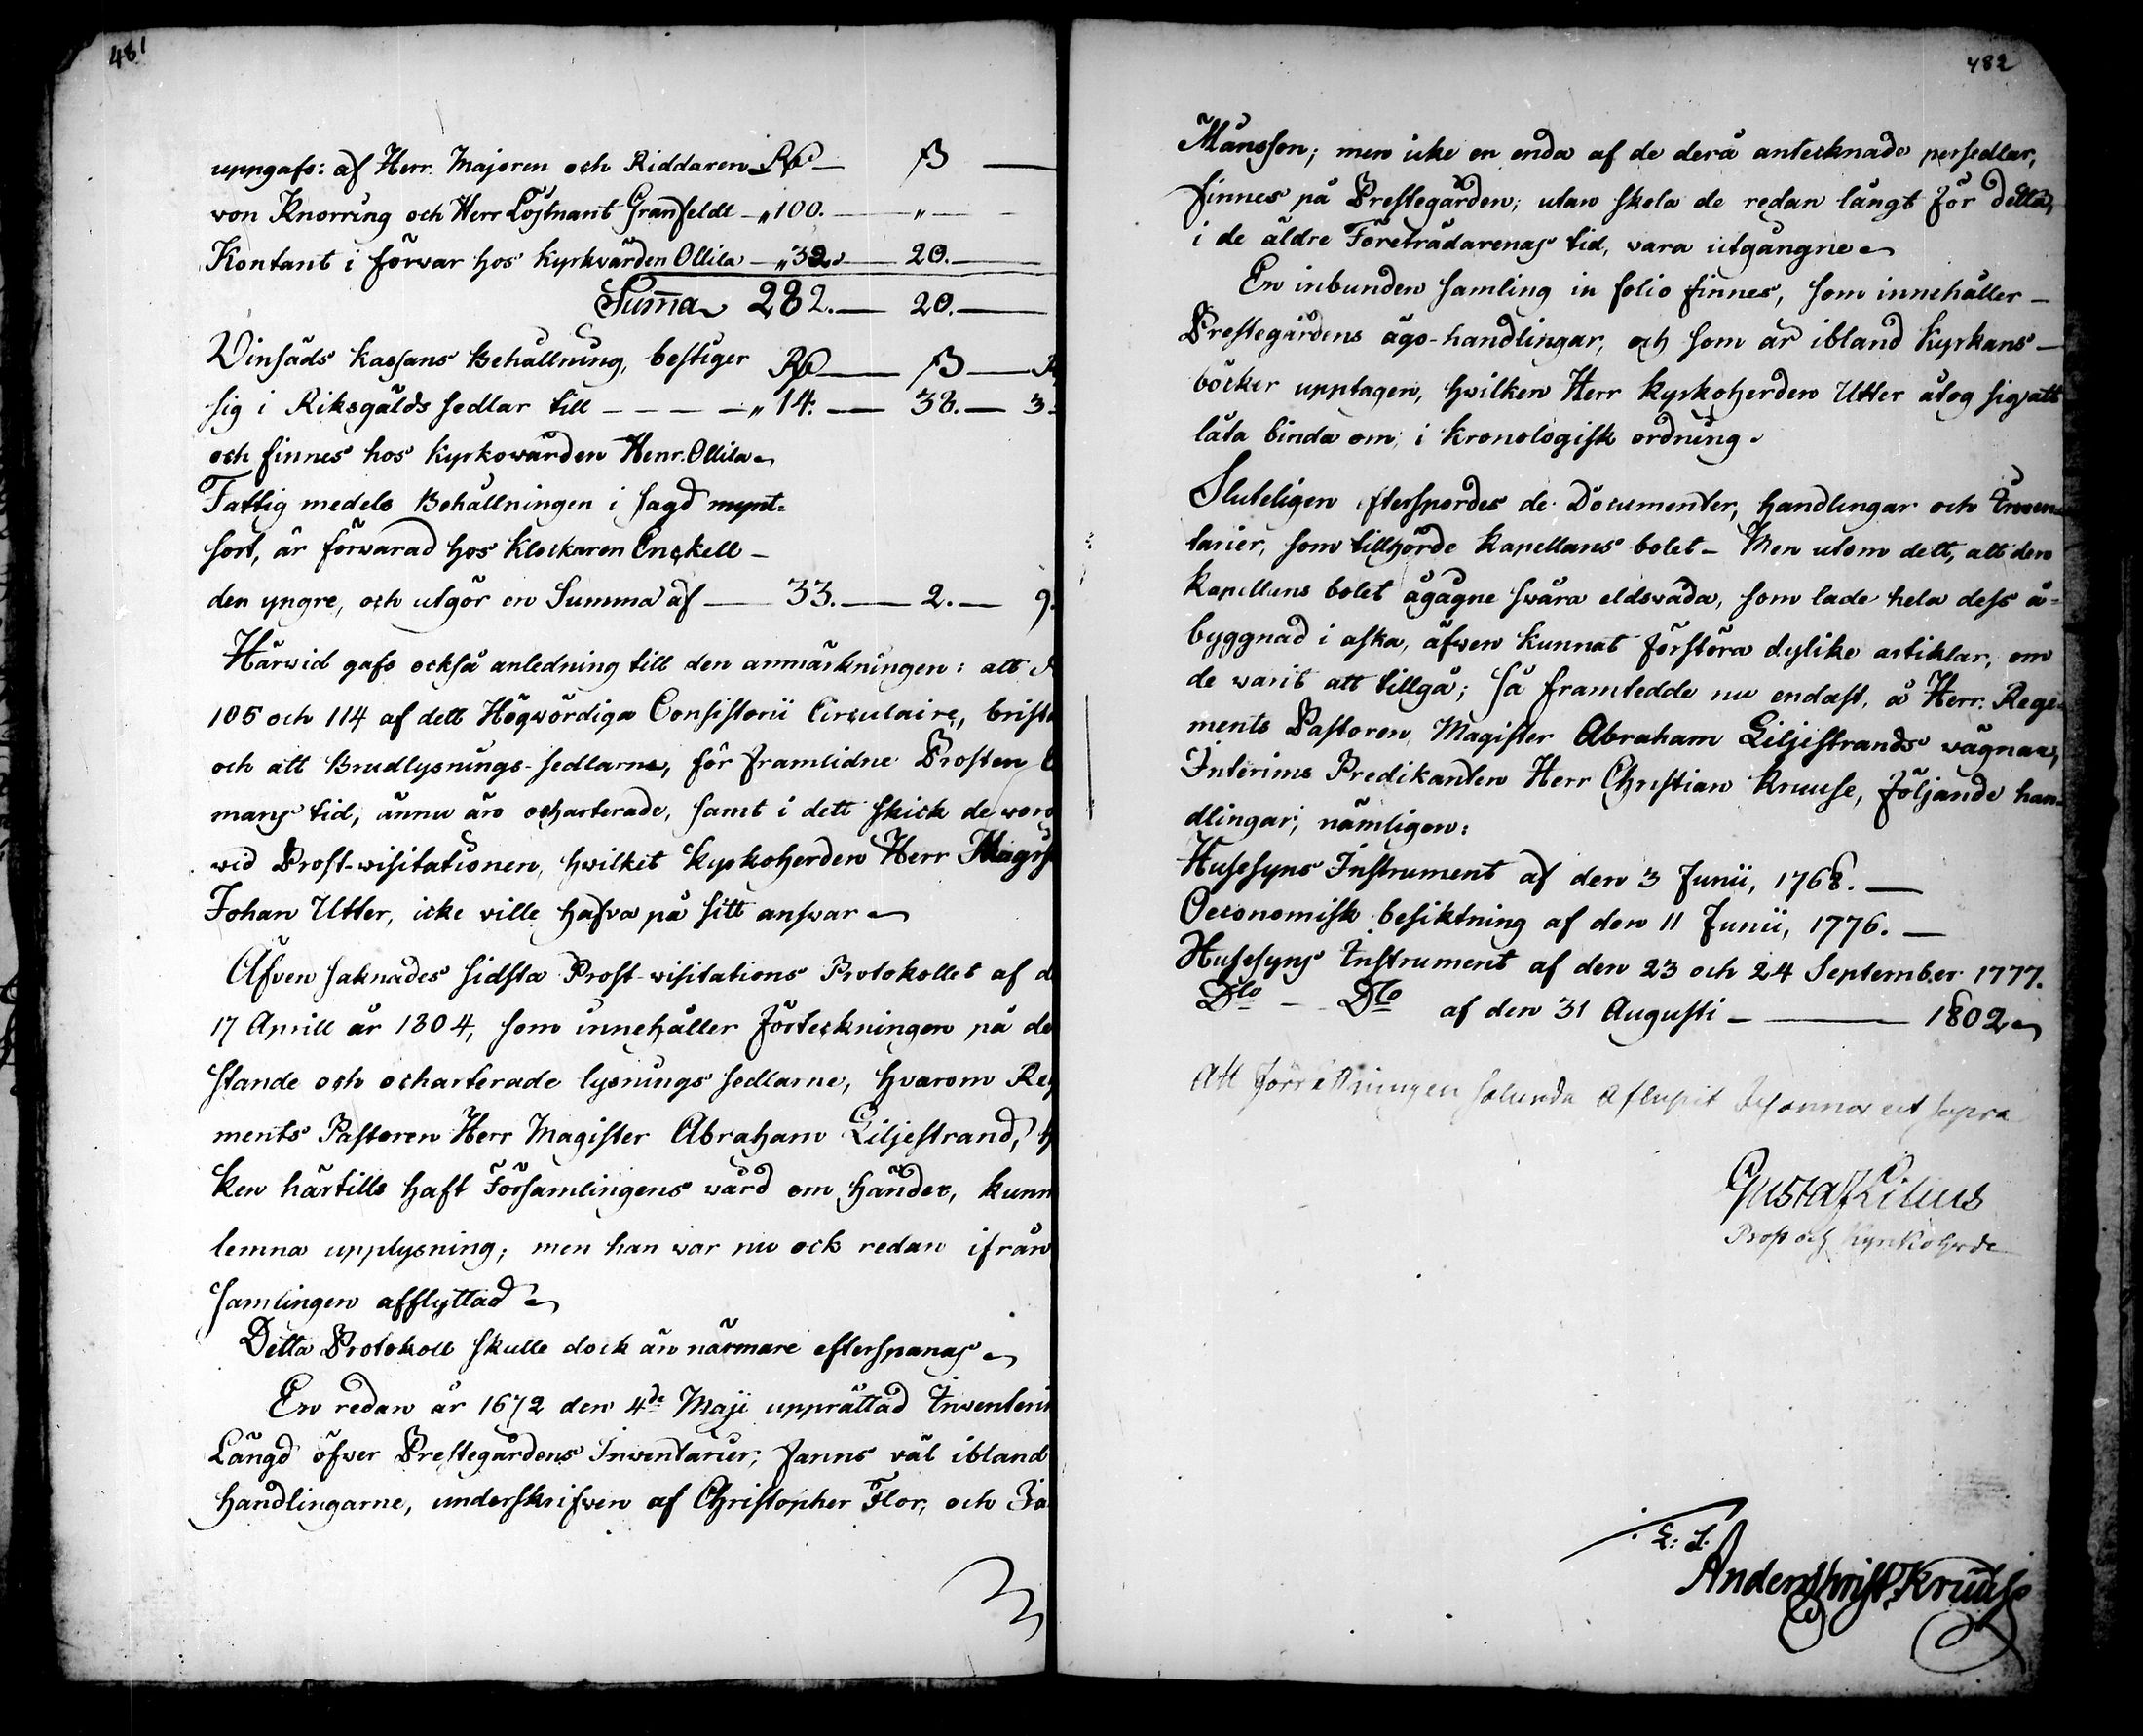 481
uppgafs: af Herr Majoren och Riddaren Rd — ß —
von Knorring och Herr Löjtnant Granfeldt — „ 100. — „ —
Kontant i förwar hos kyrkvärden Ollila — „ 32. — 20. —
Summa 282. — 20. —
Winsäds kassans Behållning, bestiger Rd — ß — R
sig i Riksgälds sedlar till — — — — „ 14. — 38. — 3
och finnes hos kyrkowärden Henr. Ollila
Fattig medels Behållningen i sagd mynt=
sort, är förwarad hos klockaren Enckell —
den yngre, och utgör en Summa af — 33. — 2. — 9.
Härwid gafs också anledning till den anmärkningen: att
105 och 114 af dett Högwördiga Consistorii Circulaire, brist
och att Brudlysnings-sedlarne, för framlidne Prosten
mans tid, ännu äro ocharterade, samt i dett skick de woro
wid Prost-wisitationen, hwilket kyrkoherden Herr Magist
Johan Utter, icke ville hafva på sitt answar
Äfven saknades sidsta Prost-wisitations Protokollet af d
17 Aprill år 1804, som innehåller förteckningen på de
stande och ocharterade lysnings sedlarne, hvarom Re
ments Pastoren Herr Magister Abraham Liljestrand, h
ken härtills haft Församlingens wård om händer, kunn
lemna upplysning; men han war nu ock redan ifrån
samlingen afflyttad
Detta Protokoll skulle dock än närmare efterspanas
En redan år 1672 den 4de Maji upprättad Inwentari
Längd öfver Prestegårdens Inwentarier, fanns väl ibland
handlingarne, underskrifven af Christopher Flor, och
482
Månsson; men icke en enda af de derå antecknade persedlar,
finnes på Prestegården; utan skola de redan långt för detta,
i de äldre Företrädarenas tid, vara utgångne
En inbunden samling in folio finnes, som innehåller —
Prestegårdens ägo-handlingar, och som är ibland Kyrkans —
böcker upptagen, hwilken Herr kyrkoherden Utter åtog sig att
låta binda om, i kronologisk ordning.
Sluteligen efterspordes de Documenter, handlingar och Inwen=
tarier, som tillhörde kapellans bolet — Men utom dett, att den
kapellans bolet ägågne swåra eldswåda, som lade hela dess å=
byggnad i aska, äfwen kunnat förstöra dylike artiklar, om
de warit att tillgå; så framtedde nu endast, å Herr Rege=
ments Pastoren, Magister Abraham Liljestrands wägnar,
Interims Predikanten Herr Christian Kruuse, följande han=
dlingar; nämligen:
Husesyns Instrument af den 3 Junii, 1768. —
Oeconomisk besiktning af den 11 Junii, 1776. —
Husesyns Instrument af den 23 och 24 September 1777.
Dto — Dto af den 31 Augusti — — 1802
Att förrättningen sålunda aflupit ut supra
Gustaf
Prost och Kyrkoherde
L: S.
Kruuse